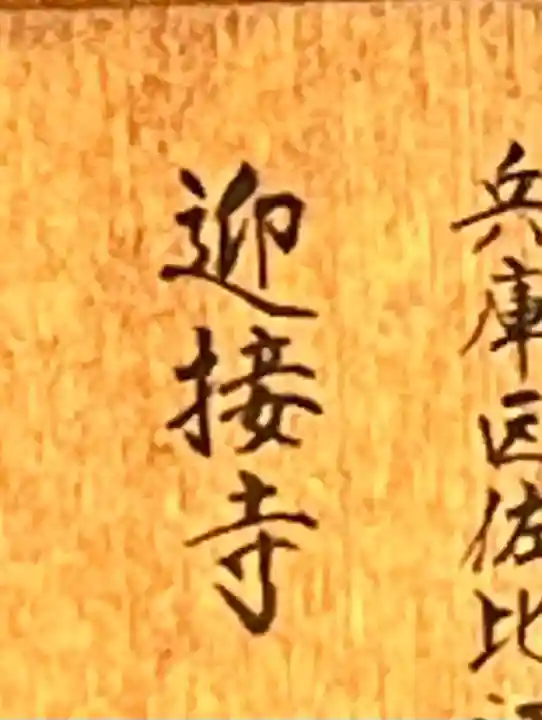 兵庫区佐比
迎接寺